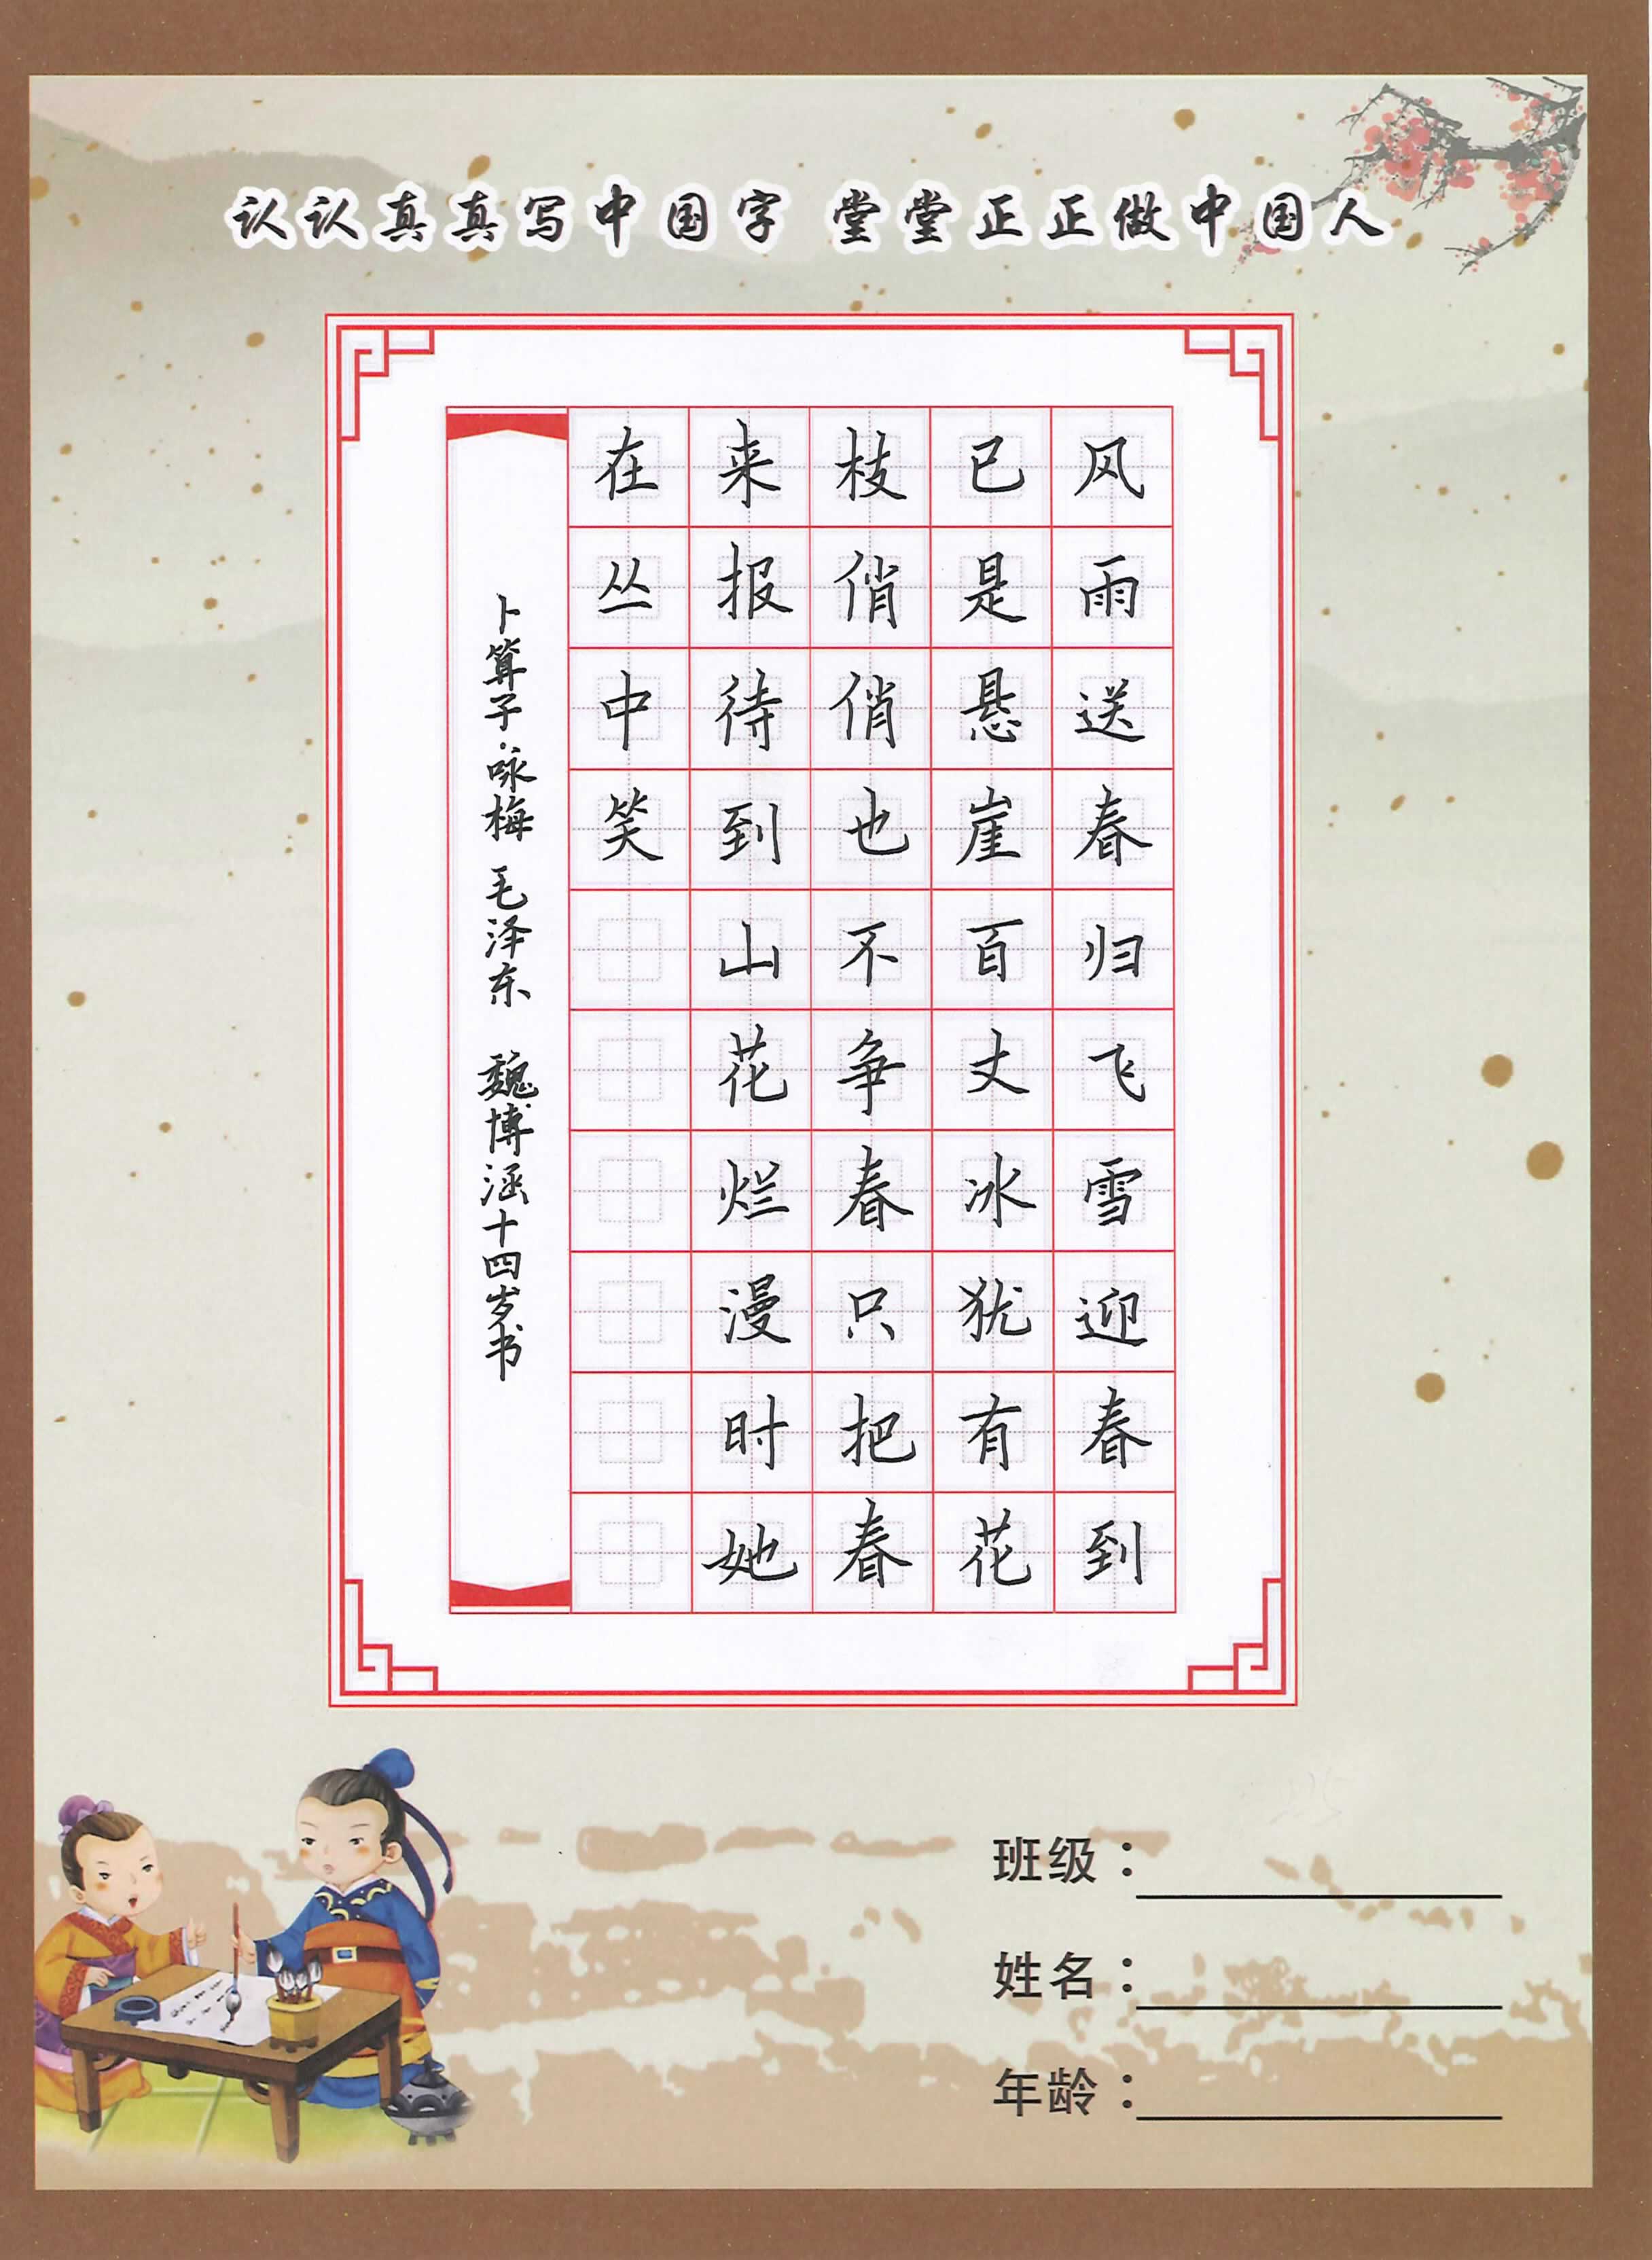 认认真真写中国字 堂堂正正做中国人
风雨送春归飞雪迎春到
已是悬崖百丈冰犹有花
枝俏俏也不争春只把春
来报待到山花烂漫时她
在丛中笑
卜算子·咏梅 毛泽东 魏博涵十四岁书
班级：
姓名：
年龄：